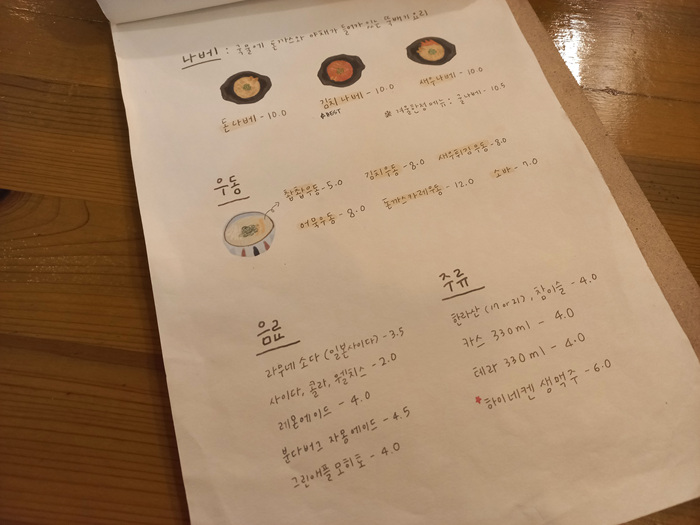 나베 : 국물에 돈가스와 야채가 들어가 있는 뚝배기 요리
돈나베 - 10.0
김치나베 - 10.0
새우나베 - 10.0
BEST
※ 겨울한정메뉴 : 굴나베 - 10.5
우동
참참우동 - 5.0
김치우동 - 8.0
새우튀김우동 - 8.0
어묵우동 - 8.0
돈까스카레우동 - 12.0
소바 - 7.0
음료
라무네 소다 (일본사이다) - 3.5
사이다, 콜라, 웰치스 - 2.0
레몬에이드 - 4.0
분다버그 자몽에이드 - 4.5
그린애플모히또 - 4.0
주류
한라산 (17 or 21), 참이슬 - 4.0
카스 330ml - 4.0
테라 330ml - 4.0
하이네켄 생맥주 - 6.0